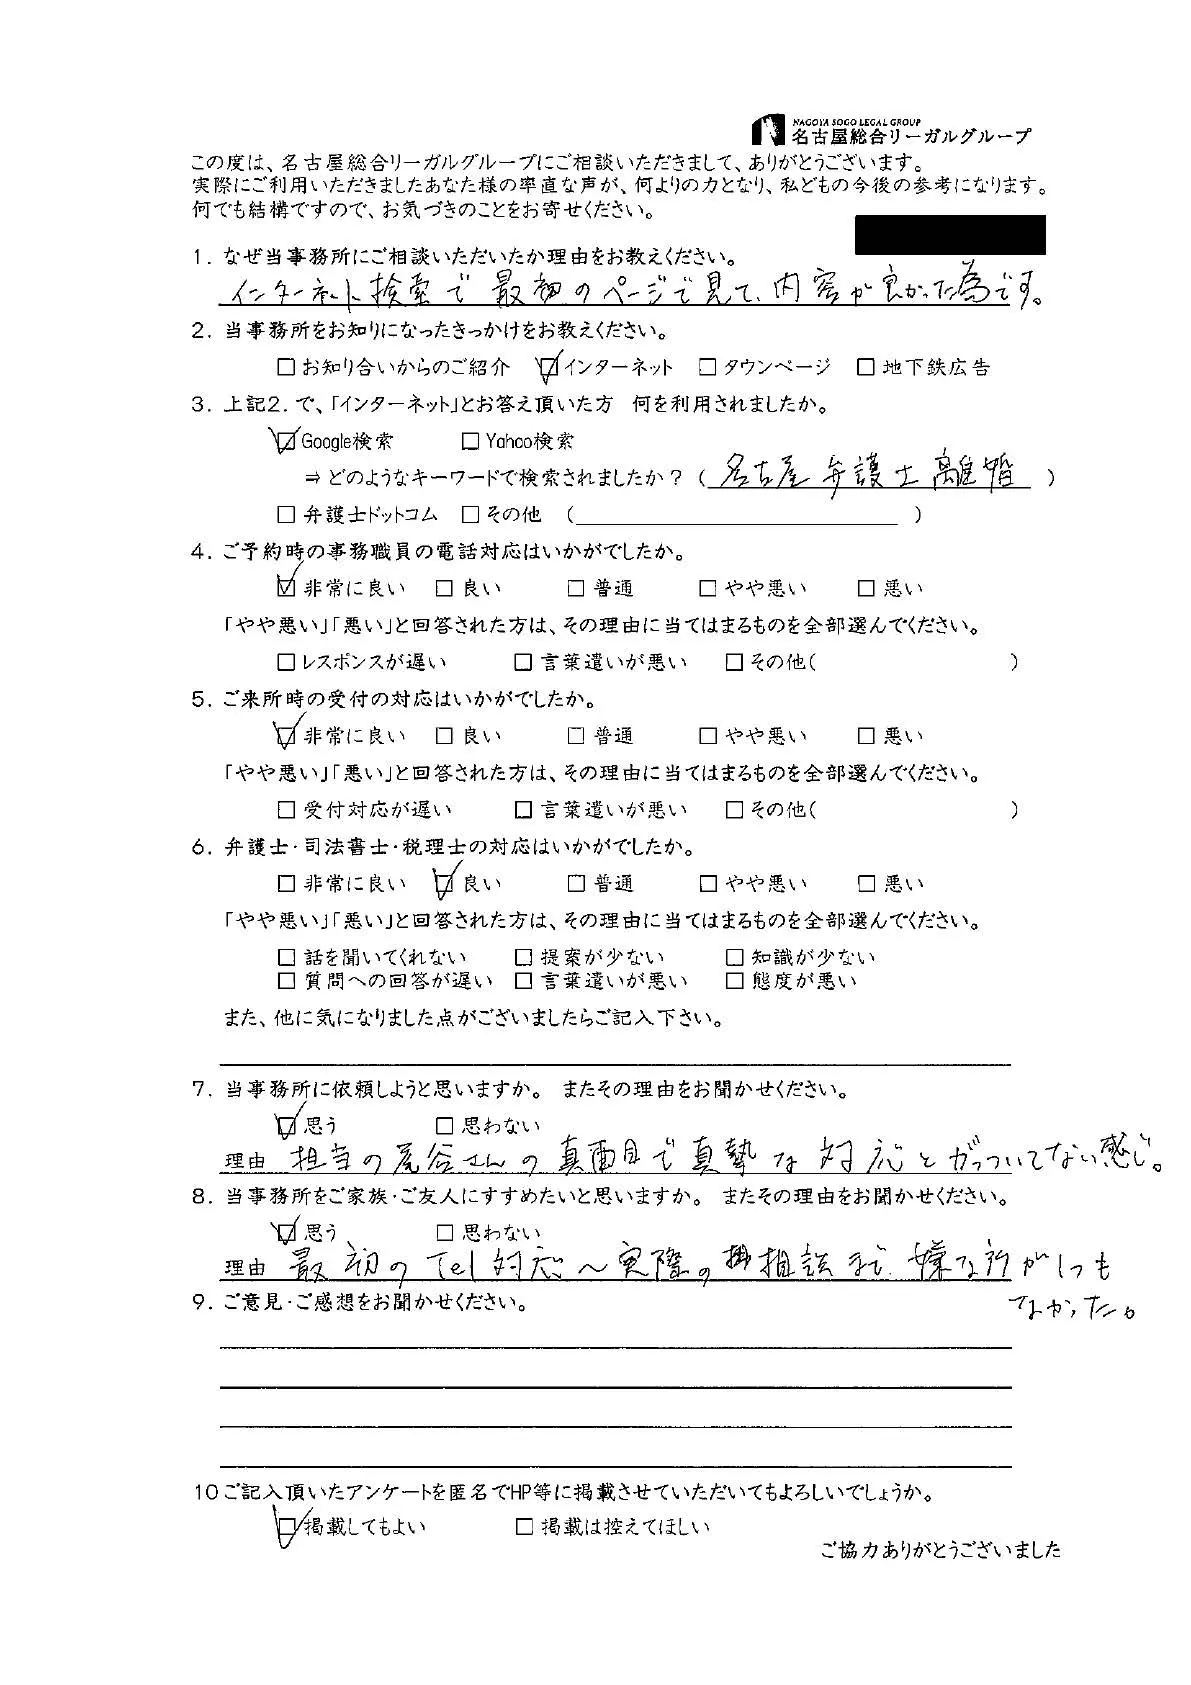 NAGOYA SOGO LEGAL GROUP
名古屋総合リーガルグループ
この度は、名古屋総合リーガルグループにご相談いただきまして、ありがとうございます。
実際にご利用いただきましたあなた様の率直な声が、何よりの力となり、私どもの今後の参考になります。
何でも結構ですので、お気づきのことをお寄せください。
1. なぜ当事務所にご相談いただいたか理由をお教えください。
インターネット検索で最初のページで見て、内容が良かった為です。
2. 当事務所をお知りになったきっかけをお教えください。
□お知り合いからのご紹介 ☑インターネット □タウンページ □地下鉄広告
3. 上記2. で、「インターネット」とお答え頂いた方 何を利用されましたか。
☑Google検索 □Yahoo検索
⇒どのようなキーワードで検索されましたか？(名古屋 弁護士 離婚)
□弁護士ドットコム □その他 ( )
4. ご予約時の事務職員の電話対応はいかがでしたか。
☑非常に良い □良い □普通 □やや悪い □悪い
「やや悪い」「悪い」と回答された方は、その理由に当てはまるものを全部選んでください。
□レスポンスが遅い □言葉遣いが悪い □その他( )
5. ご来所時の受付の対応はいかがでしたか。
☑非常に良い □良い □普通 □やや悪い □悪い
「やや悪い」「悪い」と回答された方は、その理由に当てはまるものを全部選んでください。
□受付対応が遅い □言葉遣いが悪い □その他( )
6. 弁護士・司法書士・税理士の対応はいかがでしたか。
□非常に良い ☑良い □普通 □やや悪い □悪い
「やや悪い」「悪い」と回答された方は、その理由に当てはまるものを全部選んでください。
□話を聞いてくれない □提案が少ない □知識が少ない
□質問への回答が遅い □言葉遣いが悪い □態度が悪い
また、他に気になりました点がございましたらご記入下さい。
7. 当事務所に依頼しようと思いますか。 またその理由をお聞かせください。
☑思う □思わない
理由 担当の尾谷さんの真面目で真摯な対応とがっついてない感じ。
8. 当事務所をご家族・ご友人にすすめたいと思いますか。 またその理由をお聞かせください。
☑思う □思わない
理由 最初のTel対応〜実際の相談まで嫌な所が1つも
なかった。
9. ご意見・ご感想をお聞かせください。
10 ご記入頂いたアンケートを匿名でHP等に掲載させていただいてもよろしいでしょうか。
☑掲載してもよい □掲載は控えてほしい
ご協力ありがとうございました